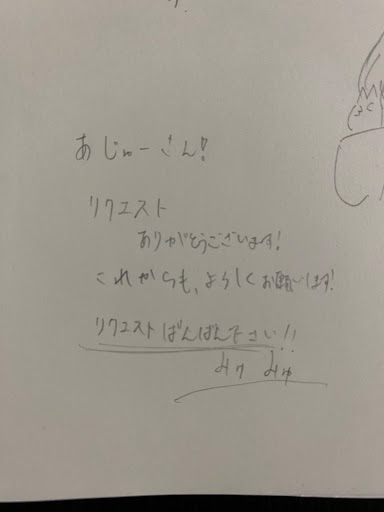 あじゅーさん!
リクエスト
ありがとうございます!
これからも、よろしくお願いします!
リクエストばんばん下さい!!
みゅ